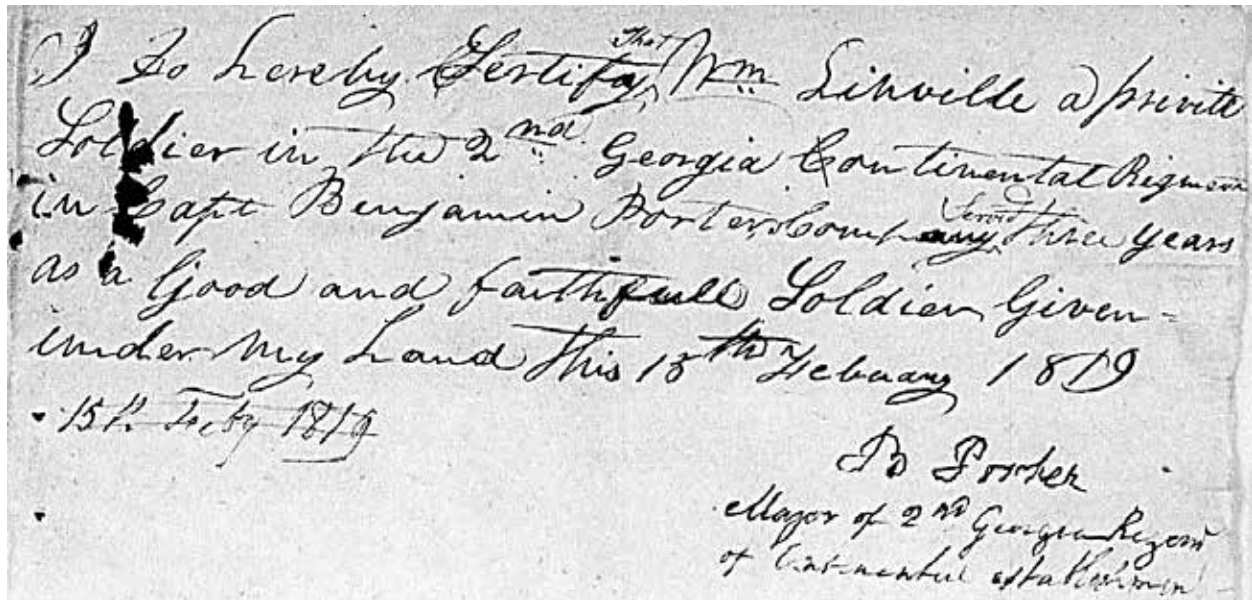 I do hereby Certify That Wm Linville a privite
Soldier in the 2nd Georgia Continental Regment
in Capt Benjamin Porters Company Served three years
as a Good and faithfull Soldier Given =
under my hand this 15th Febuary 1819
15th Feby 1819
B Porter
Major of 2nd Georgia Regemt
of Continental establishment